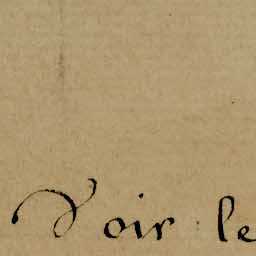 Voir le